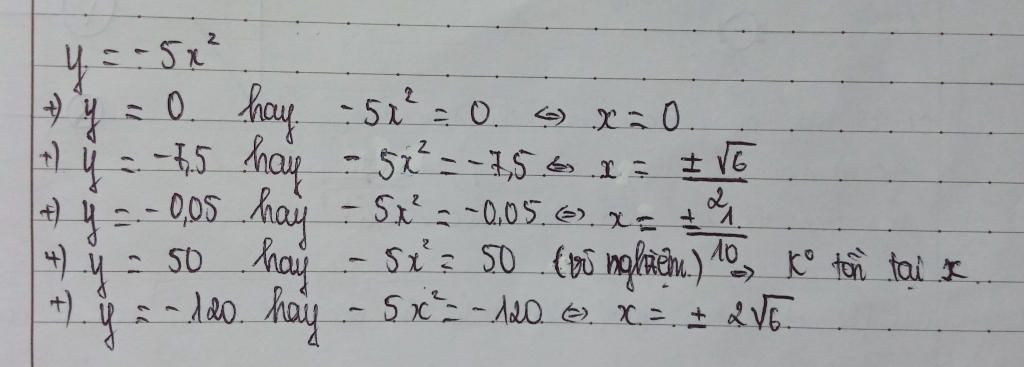 y = - 5x²
+) y = 0 hay - 5x² = 0 ⇔ x = 0
+) y = -7,5 hay - 5x² = -7,5 ⇔ x = ±√6/2
+) y = - 0,05 hay - 5x² = -0,05 ⇔ x = ±1/10
+) y = 50 hay - 5x² = 50 (vô nghiệm) ⇒ K° tồn tại x
+) y = - 120 hay - 5x² = - 120 ⇔ x = ± 2√6